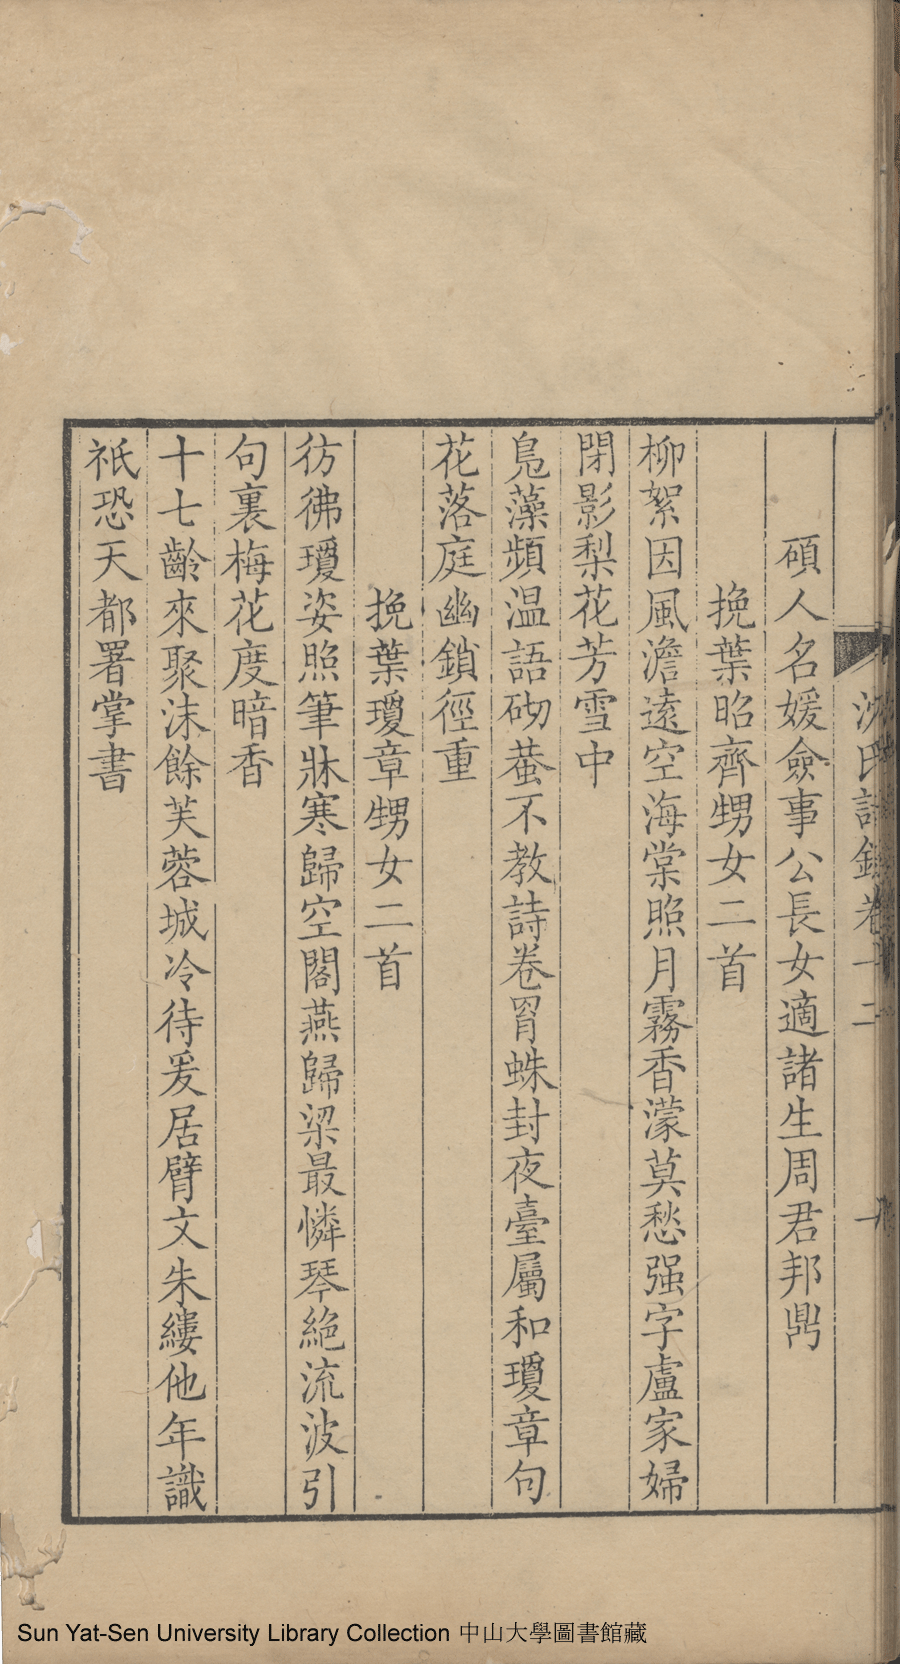 沈氏詩錄卷十二 一
碩人名媛僉事公長女適諸生周君邦鼎
挽葉昭齊甥女二首
柳絮因風澹遠空海棠照月霧香濛莫愁强字盧家婦
閉影梨花芳雪中
鳧藻頻温語砌蛬不教詩卷罥蛛封夜臺屬和瓊章句
花落庭幽鎖徑重
挽葉瓊章甥女二首
彷彿瓊姿照筆牀寒歸空閣燕歸梁最憐琴絶流波引
句裏梅花度暗香
十七齡來聚沫餘芙蓉城冷待爰居臂文朱縷他年識
祇恐天都署掌書
Sun Yat-Sen University Library Collection 中山大學圖書館藏